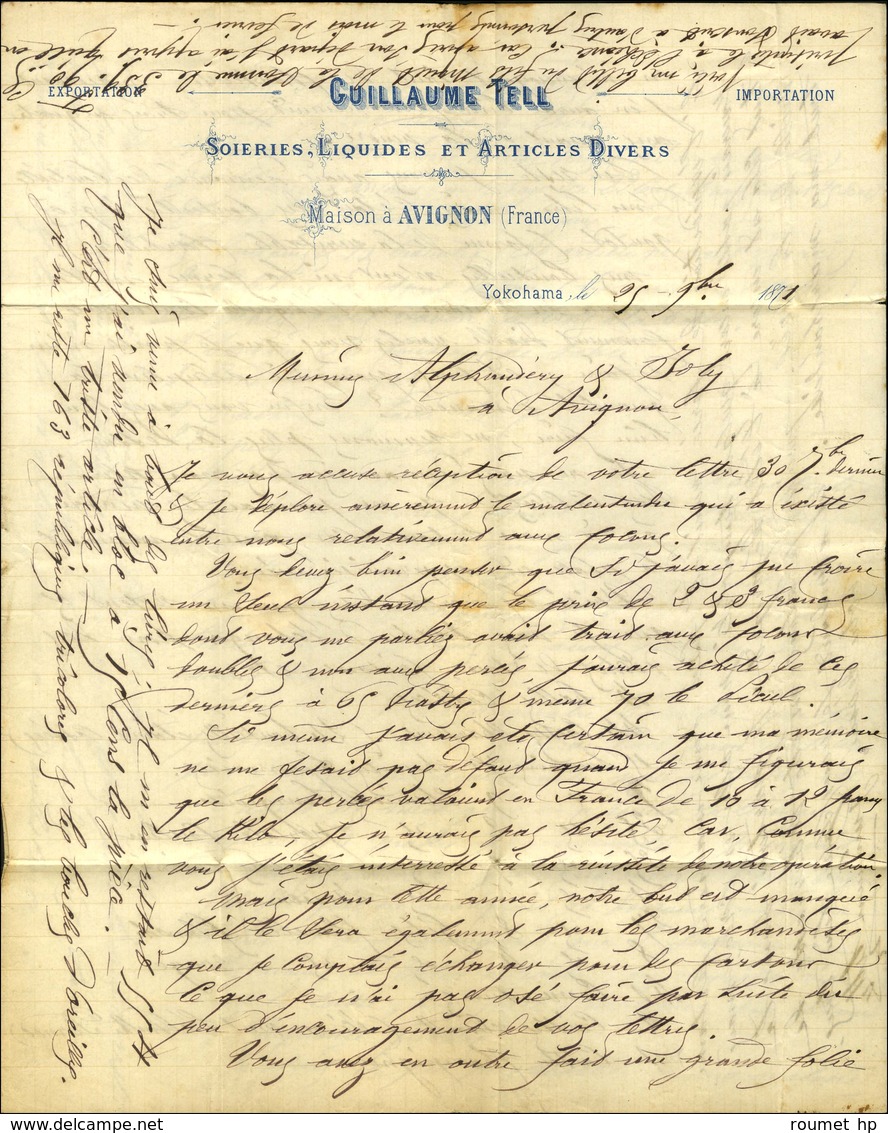 EXPORTATION
GUILLAUME TELL
IMPORTATION
SOIERIES, LIQUIDES ET ARTICLES DIVERS
Maison à AVIGNON (France)
Yokohama, le 25 - 9bre 1871
Messieurs Alphandéry & Joly
à Avignon
Je vous accuse réception de votre lettre 30 7bre dernier
& je déplore amèrement le malentendu qui a existé
entre nous relativement aux cocons.
Vous devez bien penser que si j'avais pu croire
un seul instant que le prix de 2 & 3 francs
dont vous me parliez avait trait aux cocons
doubles & non aux percés, j'aurais acheté de ces
derniers à 65 piastres & même 70 le picul.
Si même j'avais été certain que ma mémoire
ne me fesait pas défaut quand je me figurais
que les percés valaient en France de 10 à 12 francs
le kilo, je n'aurais pas hésité car, comme
vous j'étais interressé à la réussite de notre opération.
Mais pour cette année, notre but est manqué
& il le sera également pour les marchandises
que je comptais échanger pour des cartons
ce que je n'ai pas osé faire par suite du
peu d'encouragement de vos lettres.
Vous avez en outre fait une grande folie
Je suis venu à bout des
que j'ai vendu en bloc à 15 cens la pièce.
C'est un triste article.
Il me reste 163 républiques tricolores & les boucles d'oreilles.
Voilà un billet du fils
avait
pour le mois de février.